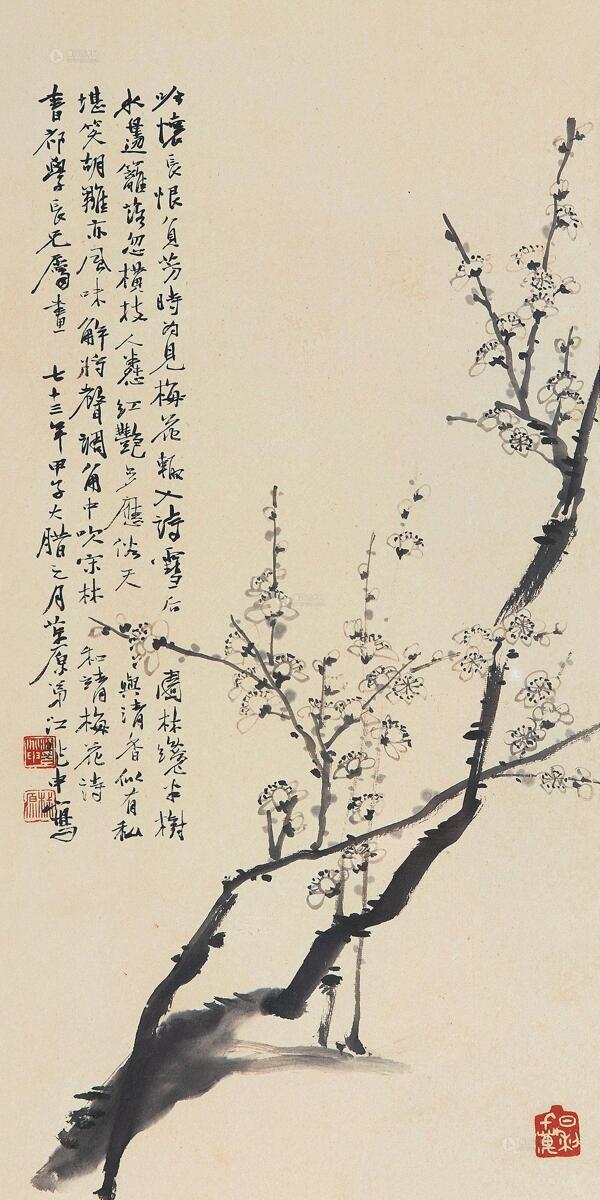 吟懷長恨負芳時为見梅花輒入詩雪后 園林纔半樹
水邊籬落忽橫枝人憐红艷多應俗天 與清香似有私
堪笑胡雛亦風味解将聲調角中吹宋林 和靖梅花诗
書都學長兄屬畫 七十三年甲子大腊之月草原弟江兆申寫
日利
千萬